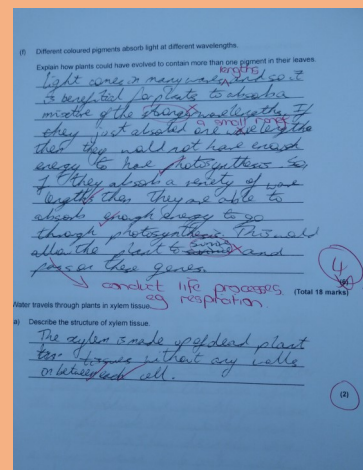 (f) Different coloured pigments absorb light at different wavelengths.
Explain how plants could have evolved to contain more than one pigment in their leaves.
lengths
Light comes in many wave and so it
is benefited for plants to absorb a
mixture of the wavelengths. If
a small range
they just absorbed one wavelengths
then they would not have enough
energy to have photosynthesis. So,
if they absorb a variety of wave
lengths then they are able to
absorb enough energy to go
through photosynthesis. This would
allow the plant to survive and
pass on these genes.
4
conduct life processes
eg respiration.
(Total 18 marks)
Water travels through plants in xylem tissue.
a) Describe the structure of xylem tissue.
The xylem is made up of dead plant
tissues without any walls
or between each cell.
(2)